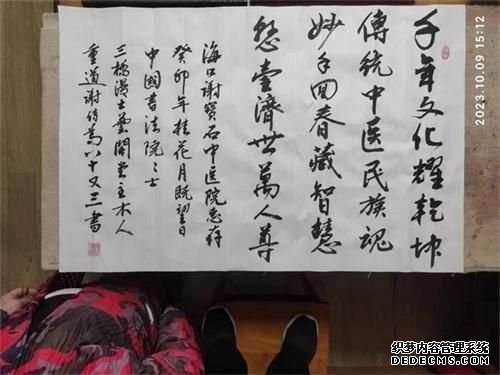 千年文化耀乾坤
傳统中医民族魂
妙手回春藏智慧
悬壶濟世萬人尊
海口谢寳石中医院惠存
癸卯年桂花月既望日
中國书法院院士
三橋湯士藝開堂主木人
重道谢传為八十又三書
2023.10.09 15:12
织梦内容管理系统
DEDECMS.COM